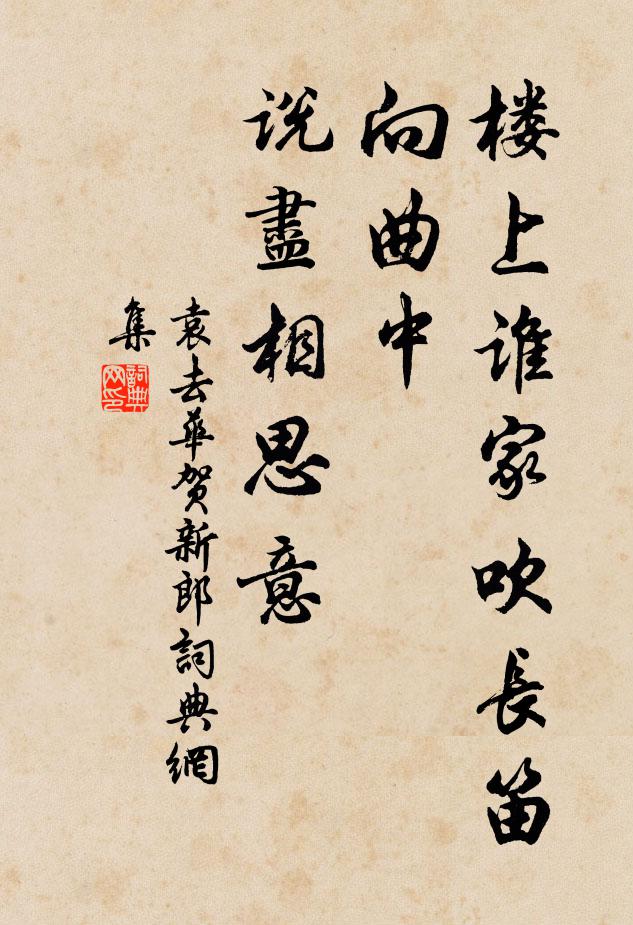 楼上谁家吹長笛
向曲中
说盡相思意
袁去華贺新郎詞典網
集
詞典
网印